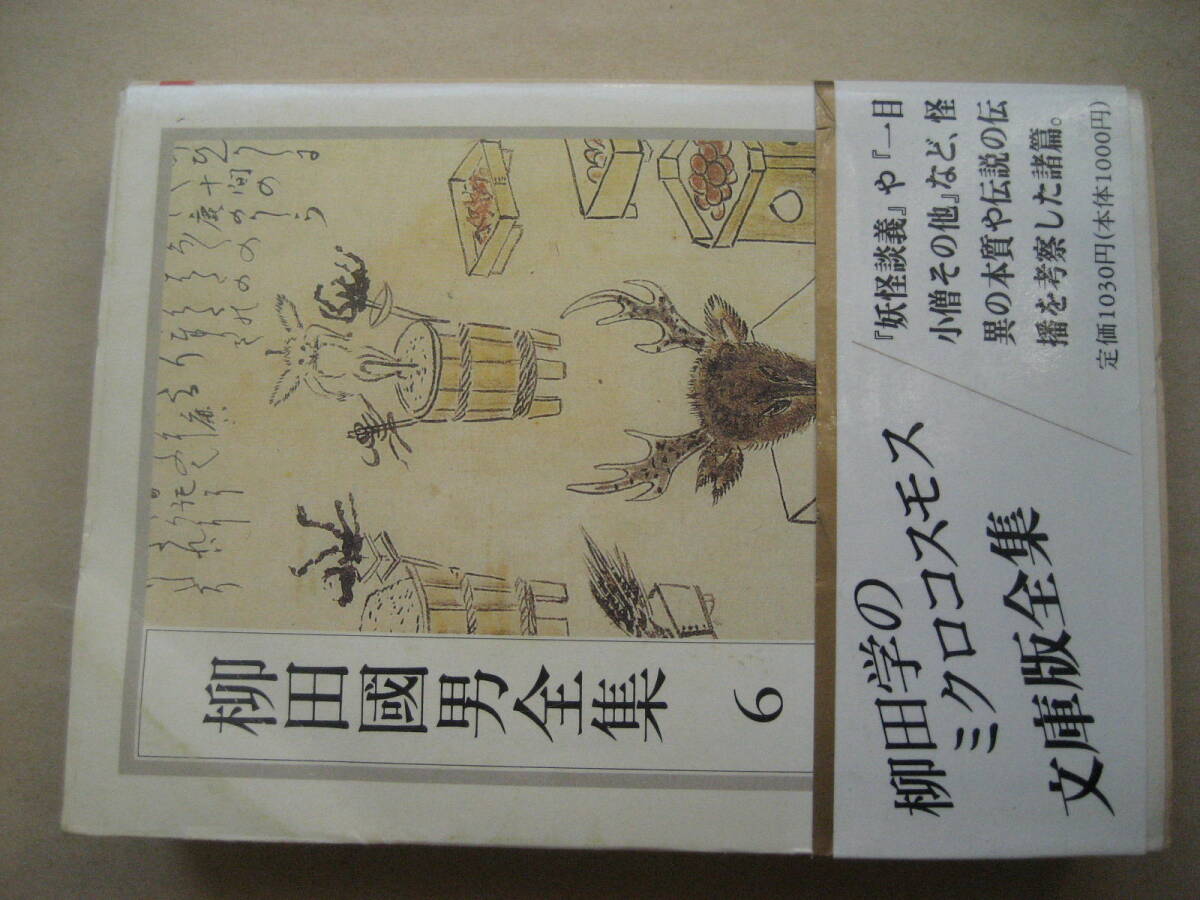 柳田國男全集
6
柳田学の
ミクロコスモス
文庫版全集
『妖怪談義』や『一目
小僧その他』など、怪
異の本質や伝説の伝
播を考察した諸篇。
定価1030円(本体1000円)